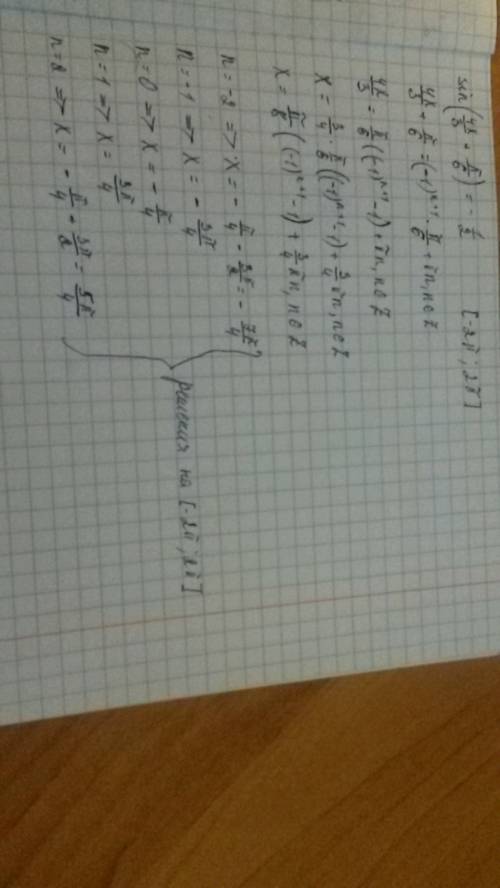 sin(4x/3 + π/6) = -1/2 [-2π; 2π]
4x/3 + π/6 = (-1)ⁿ⁺¹ · π/6 + πn, n∈Z
4x/3 = π/6((-1)ⁿ⁺¹-1) + πn, n∈Z
x = 3/4 · π/6((-1)ⁿ⁺¹-1) + 3/4 πn, n∈Z
x = π/8((-1)ⁿ⁺¹-1) + 3/4 πn, n∈Z
n=-2 => x = -π/4 - 3π/2 = -7π/4
n=-1 => x = -3π/4
n=0 => x = -π/4
n=1 => x = 3π/4
n=2 => x = -π/4 - 3π/2 = 5π/4
решения на [-2π; 2π]